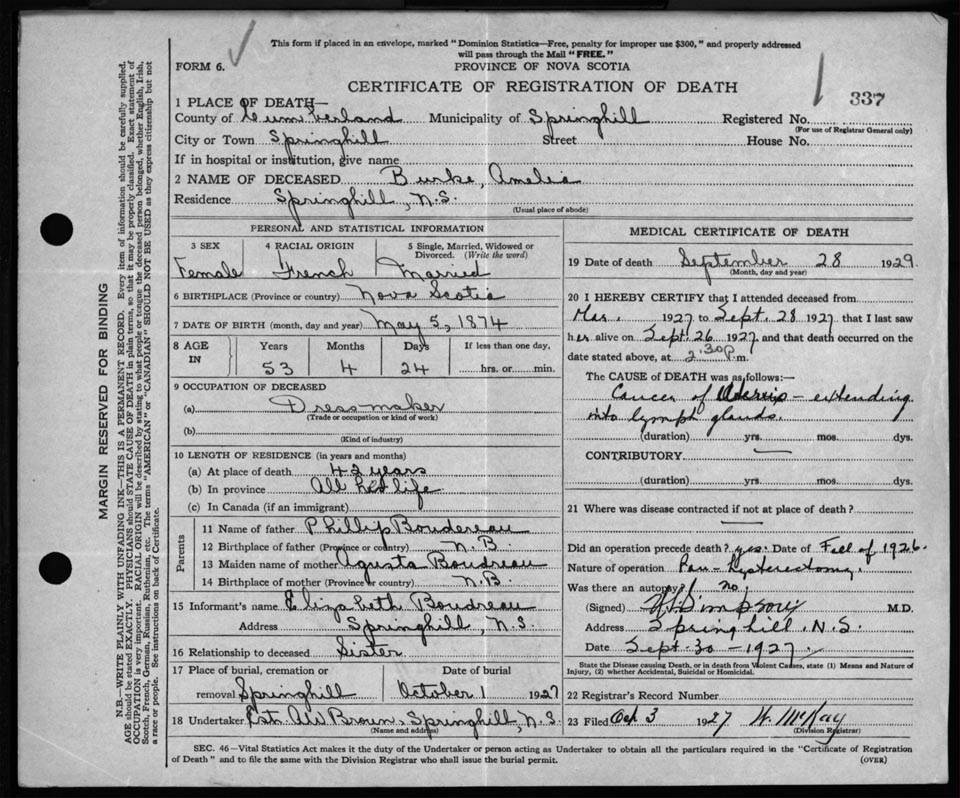 This form if placed in an envelope, marked "Dominion Statistics—Free, penalty for improper use $300," and properly addressed
will pass through the Mail "FREE."
FORM 6.
PROVINCE OF NOVA SCOTIA
CERTIFICATE OF REGISTRATION OF DEATH
337
1 PLACE OF DEATH—
County of Cumberland Municipality of Springhill Registered No.
(For use of Registrar General only)
City or Town Springhill Street House No.
If in hospital or institution, give name
2 NAME OF DECEASED Burke, Amelia
Residence Springhill, N.S.
(Usual place of abode)
PERSONAL AND STATISTICAL INFORMATION
3 SEX 4 RACIAL ORIGIN 5 Single, Married, Widowed or
Divorced. (Write the word)
Female French Married
6 BIRTHPLACE (Province or country) Nova Scotia
7 DATE OF BIRTH (month, day and year) May 5, 1874
8 AGE IN Years Months Days If less than one day,
53 4 24 hrs. or min.
9 OCCUPATION OF DECEASED
(a) Dressmaker
(Trade or occupation or kind of work)
(b)
(Kind of industry)
10 LENGTH OF RESIDENCE (in years and months)
(a) At place of death 42 years
(b) In province All her life
(c) In Canada (if an immigrant)
Parents
11 Name of father Phillip Boudereau
12 Birthplace of father (Province or country) N.B.
13 Maiden name of mother Agusta Boudreau
14 Birthplace of mother (Province or country) N.B.
15 Informant's name Elizabeth Boudreau
Address Springhill, N.S.
16 Relationship to deceased Sister
17 Place of burial, cremation or Date of burial
removal Springhill October 1 1927
18 Undertaker Brown, Springhill, N.S.
(Name and address)
MEDICAL CERTIFICATE OF DEATH
19 Date of death September 28 1929.
(Month, day and year)
20 I HEREBY CERTIFY that I attended deceased from
Mar. 1927 to Sept. 28 1927, that I last saw
her alive on Sept. 26 1927 and that death occurred on the
date stated above, at 2:30 p.m.
The CAUSE of DEATH was as follows:—
Cancer of Uterus - extending
into lymph glands.
(duration) yrs. mos. dys.
CONTRIBUTORY
(duration) yrs. mos. dys.
21 Where was disease contracted if not at place of death?
Did an operation precede death? yes. Date of Fall of 1926.
Nature of operation Pan-hysterectomy.
Was there an autopsy? no
(Signed) Simpson M.D.
Address Springhill, N.S.
Date Sept. 30 - 1927.
State the Disease causing Death, or in death from Violent Causes, state (1) Means and Nature of
Injury, (2) whether Accidental, Suicidal or Homicidal.
22 Registrar's Record Number
23 Filed Oct 3 1927 W. McKay
(Division Registrar)
SEC. 46—Vital Statistics Act makes it the duty of the Undertaker or person acting as Undertaker to obtain all the particulars required in the "Certificate of Registration
of Death" and to file the same with the Division Registrar who shall issue the burial permit. (OVER)
MARGIN RESERVED FOR BINDING
N.B.—WRITE PLAINLY WITH UNFADING INK—THIS IS A PERMANENT RECORD. Every item of information should be carefully supplied.
AGE should be stated EXACTLY. PHYSICIANS should STATE CAUSE OF DEATH in plain terms, so that it may be properly classified. Exact statement of
OCCUPATION is very important. RACIAL ORIGIN will be described by stating to what people or tongue the deceased person belonged, whether English, Irish,
Scotch, French, German, Russian, Ruthenian, etc. The terms "AMERICAN" or "CANADIAN" SHOULD NOT BE USED as they express citizenship but not
a race or people. See instructions on back of Certificate.